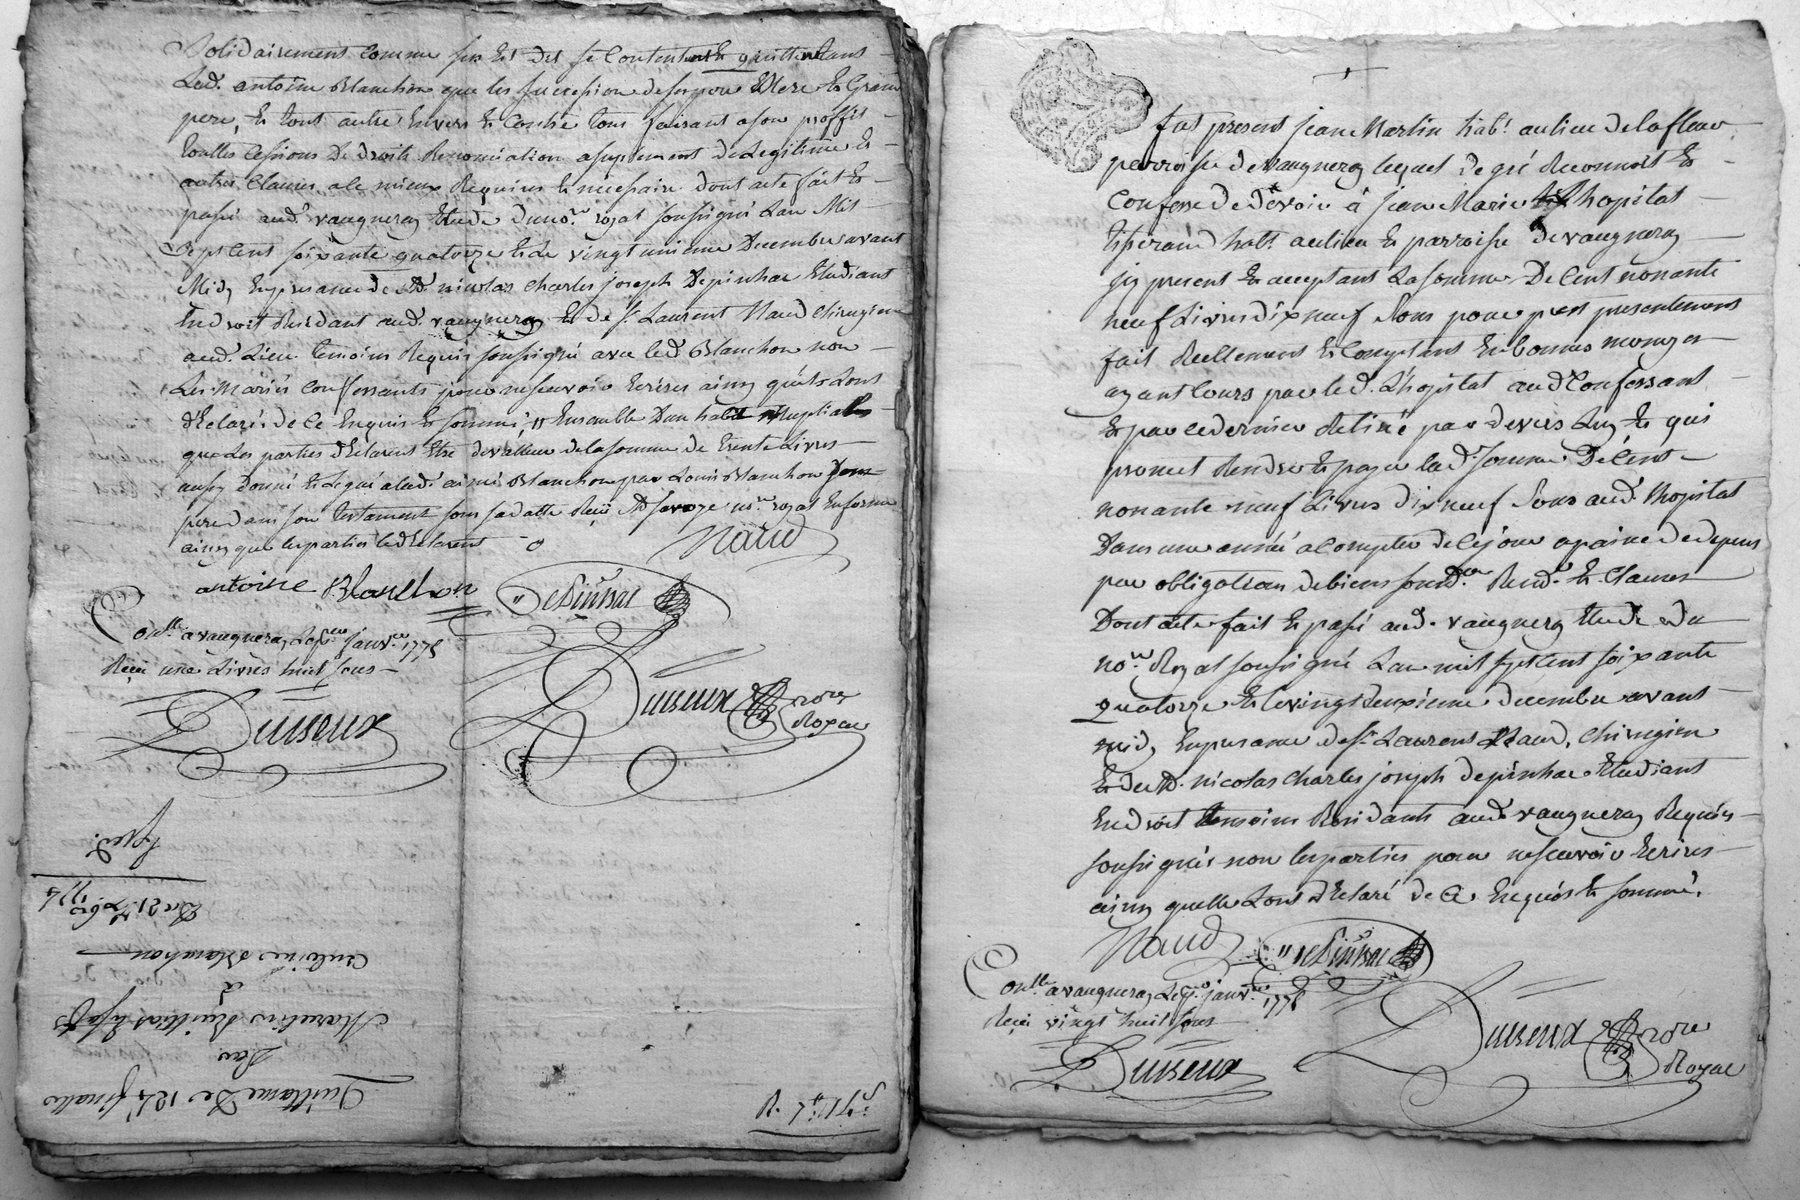 Solidairement comme sus Est dit se Contentent Et quittent Tant
Led. antoine Blanchon que les succession de ses pere Et Mere Et Grand
pere, Et tout autre Envers Et Contre tous faisant a son proffit
touttes Cessions De droits Renonciation a suplement de Legitime Et
autres Clauses ale mieux Requises Et necessaire dont acte fait Et
passé aud. vaugneray Etude du no.re royal soussigné Lan Mil
Sept cent soixante quatorze Et Le vingt unieme Decembre avant
Midy En presance de M. nicolas Charles joseph Depinhac Etudiant
En droit Residant aud. vaugneray Et de s. Laurent Naud chirugien
aud. Lieu temoins Requis soussigné avec led. Blanchon non
Les Mariés confessants pour ne scavoir Ecrires ainsy quils Lont
dEclaré de Ce Enquis Et sommé, Ensemble Dun habit Nuptialle
que Les parties dEclarent Etre de valleur de la somme de trente Livres
ausy donné Et Legué alad. aimé Blanchon par Louis Blanchon Son
pere dans son testament sous sa datte Reçu M Saroze no.re royal
ainsy que les parties led Eclarent Naud
antoine Blanchon dePinhac
Con.lle a vaugneray Le p.er janv.er 1775
Reçu une Livres huit sous
Duiseux
Duiseux no.re
Royal
Quittance De 124# finalle
Par
Mariés
a
antoine Blanchon
Du 21. Xbre
1774
Exed.
fut present jean Martin hab.t au lieu de la fleur
parroisse de vaugneray lequel de gré Reconnoit Et
Confesse de devoir à jean Marie Lhopital
hab.t au lieu Et parroisse de vaugneray
jcy present Et acceptant La somme De Cent nonante
neuf Livres dix neuf Sous pour prest presentement
fait Reellement Et Comptant En bonnes monoyes
ayant Cours par led. Lhopital aud Confessant
Et par ce dernier Retiré par devers Luy Et qui
promet Rendre Et payer lad. somme De Cent
nonante neuf Livres dix neuf Sous aud. Lhopital
Dans une année a Compter de Ce jour a paine de depens
par obligation de biens soum.on Rend. Et Clauses
Dont acte fait Et passé aud. vaugneray Etude du
no.re Royal soussigné Lan mil sept cent soixante
quatorze Et Le vingt deuxieme decembre avant
midy En presance de s. Laurent Naud, Chirugien
Et de M. nicolas Charles joseph depinhac Etudiant
En droit temoins Residants aud. vaugneray Requis
soussignés non les parties pour ne scavoir Ecrires
ainsy quelle Lont dEclaré de Ce Enquis Et sommé.
Naud dePinhac
Con.lle a vaugneray Le p.er janv.er 1775
Reçu vingt huit sous
Duiseux
Duiseux no.re
Royal